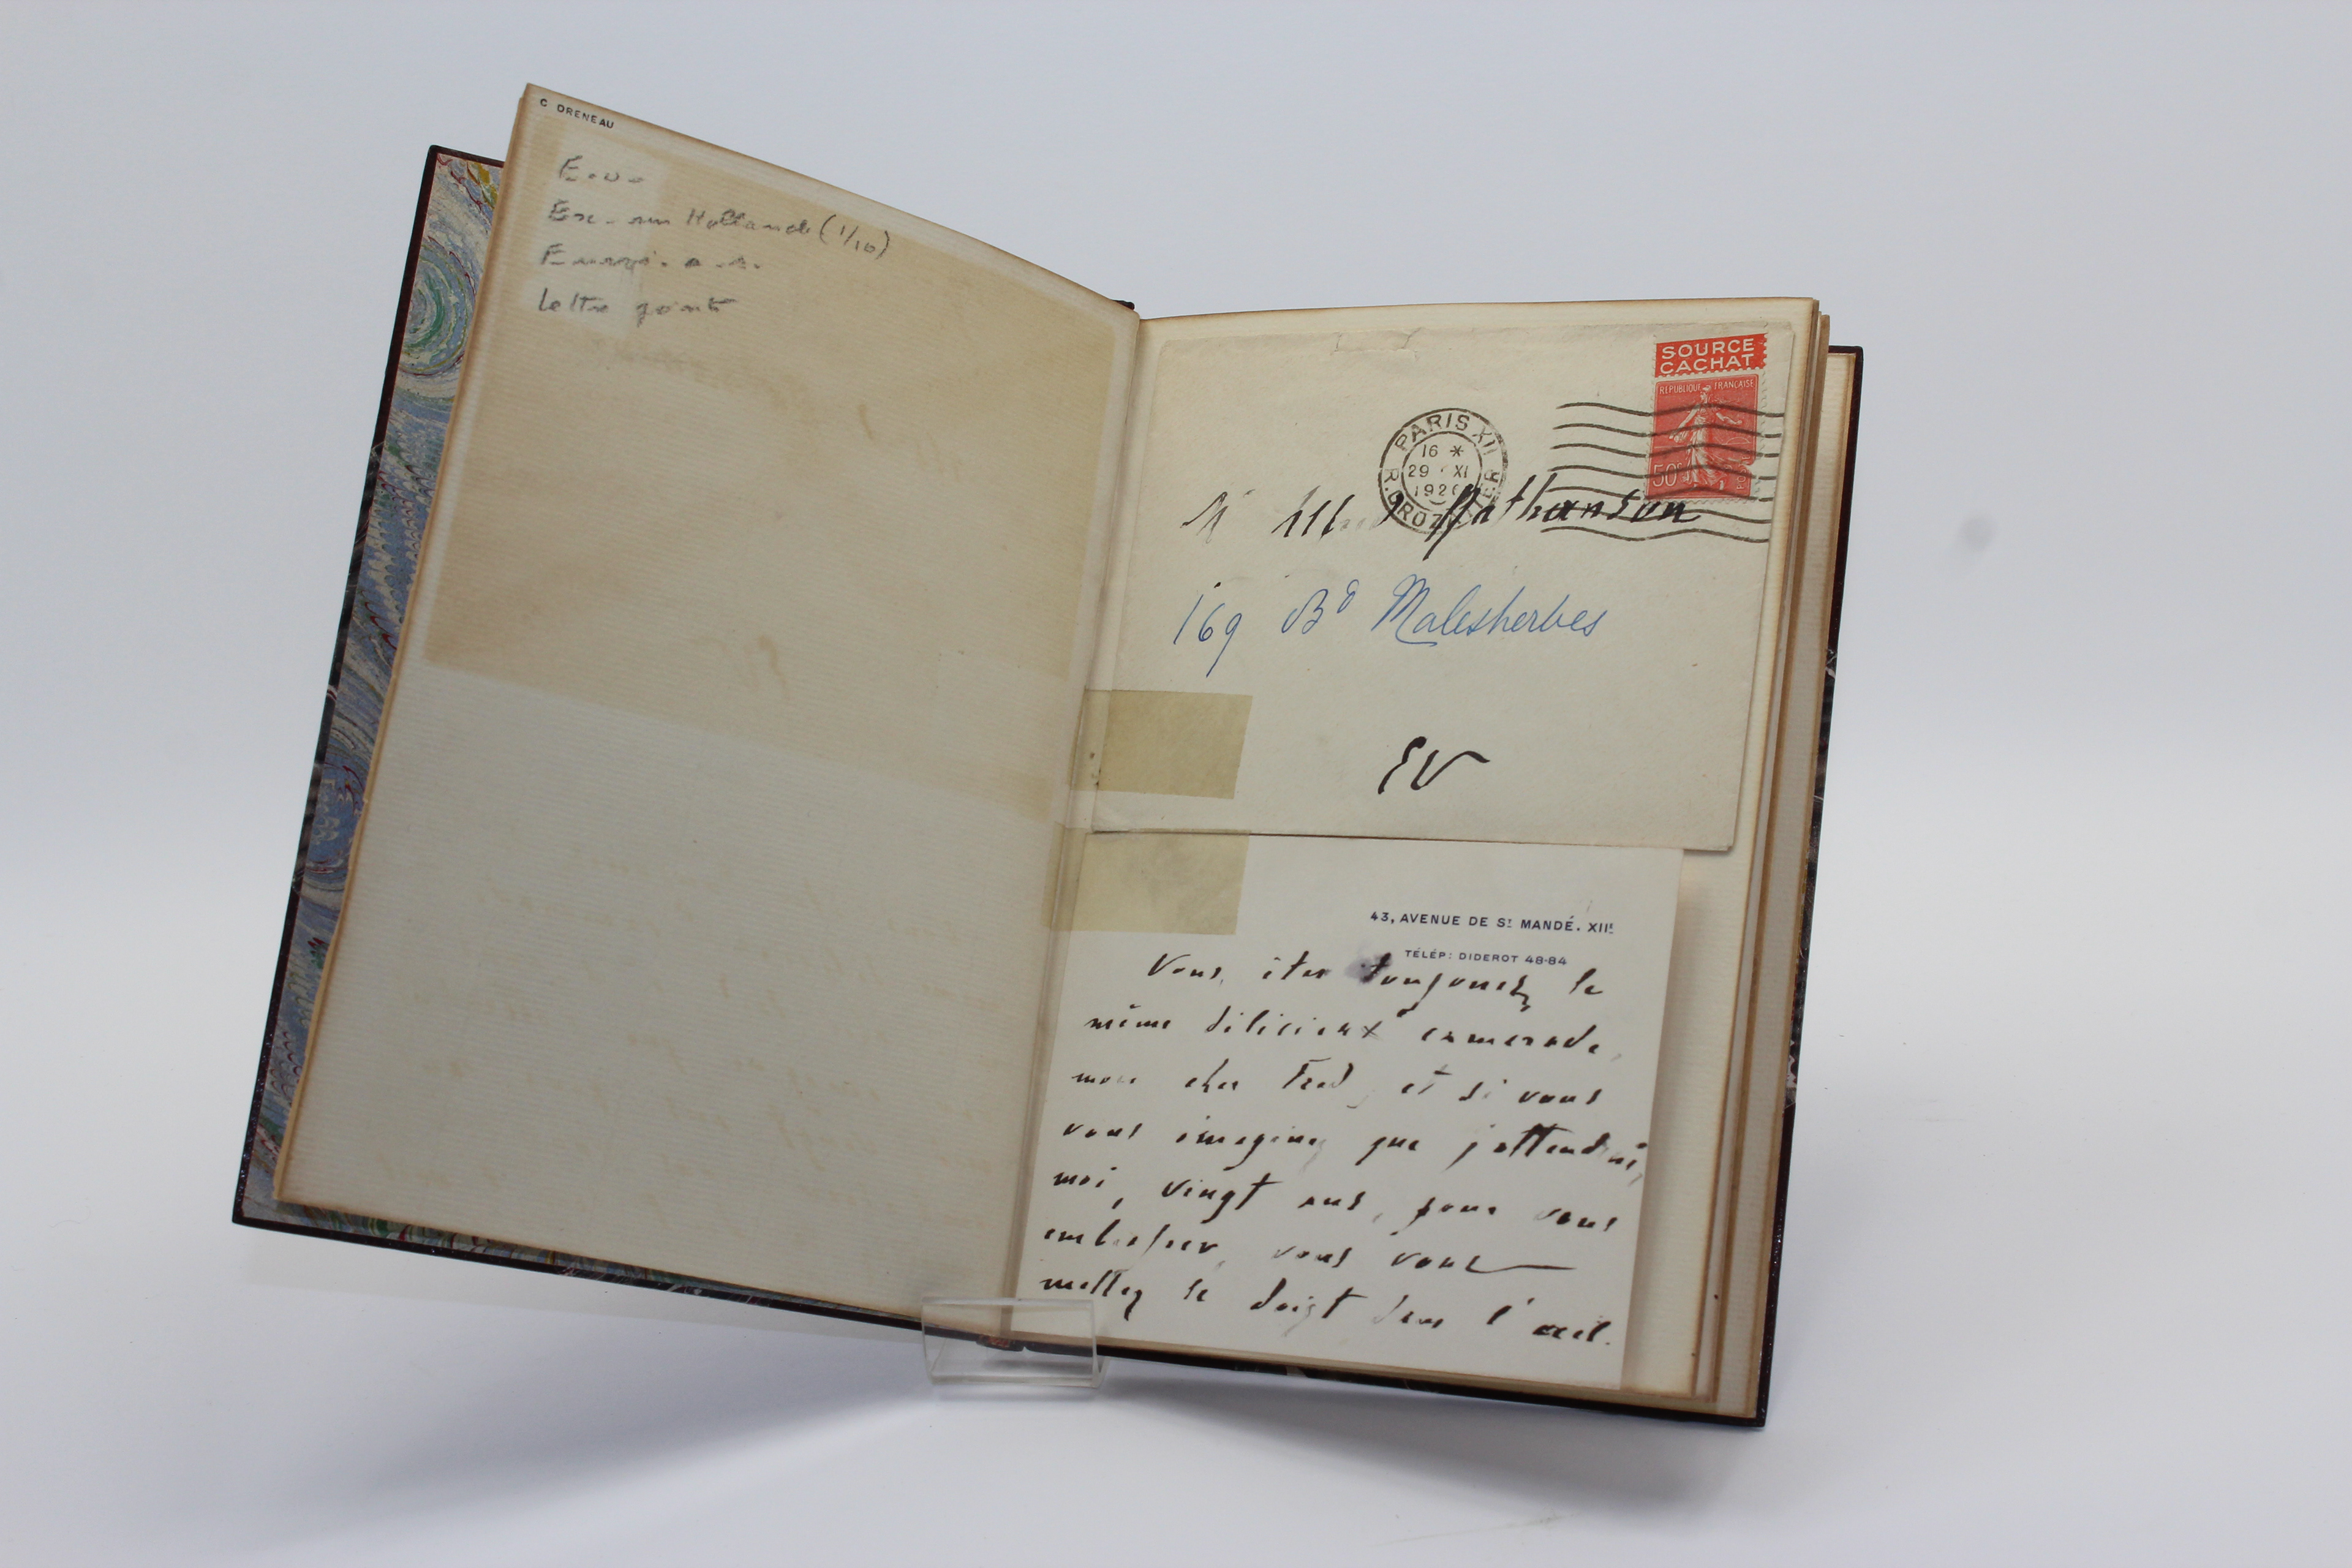 C DRENEAU
E.O.
Ex. sur Hollande (1/10)
Envoi. a. s.
Lettre jointe
SOURCE
CACHAT
REPUBLIQUE FRANÇAISE
50c
PARIS XII
16 *
29 XI
R. CROZATIER
M Nathanson
169 Bd Malesherbes
EV
43, AVENUE DE ST MANDÉ. XIIE
TÉLÉP: DIDEROT 48-84
Vous êtes toujours le
même délicieux camarade,
mon cher Fred, et si vous
vous imaginez que j'attendrai,
moi, vingt ans, pour vous
embrasser, vous vous
mettez le doigt dans l'œil.